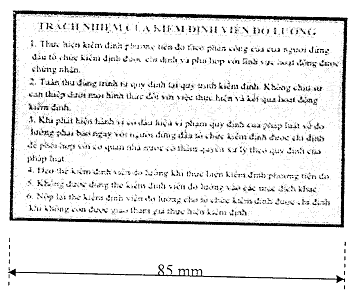 TRÁCH NHIỆM CỦA KIỂM ĐỊNH VIÊN ĐO LƯỜNG
1. Thực hiện kiểm định phương tiện đo theo phân công của người đứng
đầu tổ chức kiểm định được chỉ định và phù hợp với lĩnh vực hoạt động được
chứng nhận.
2. Tuân thủ đúng trình tự quy định tại quy trình kiểm định. Không chịu sự
can thiệp dưới mọi hình thức đối với việc thực hiện và kết quả hoạt động
kiểm định.
3. Khi phát hiện hành vi có dấu hiệu vi phạm quy định của pháp luật về đo
lường phải báo ngay với người đứng đầu tổ chức kiểm định được chỉ định
để phối hợp với cơ quan nhà nước có thẩm quyền xử lý theo quy định của
pháp luật.
4. Đeo thẻ kiểm định viên đo lường khi thực hiện kiểm định phương tiện đo
5. Không được dùng thẻ kiểm định viên đo lường vào các mục đích khác
6. Nộp lại thẻ kiểm định viên đo lường cho tổ chức kiểm định được chỉ định
khi không còn được giao tham gia thực hiện kiểm định
85 mm